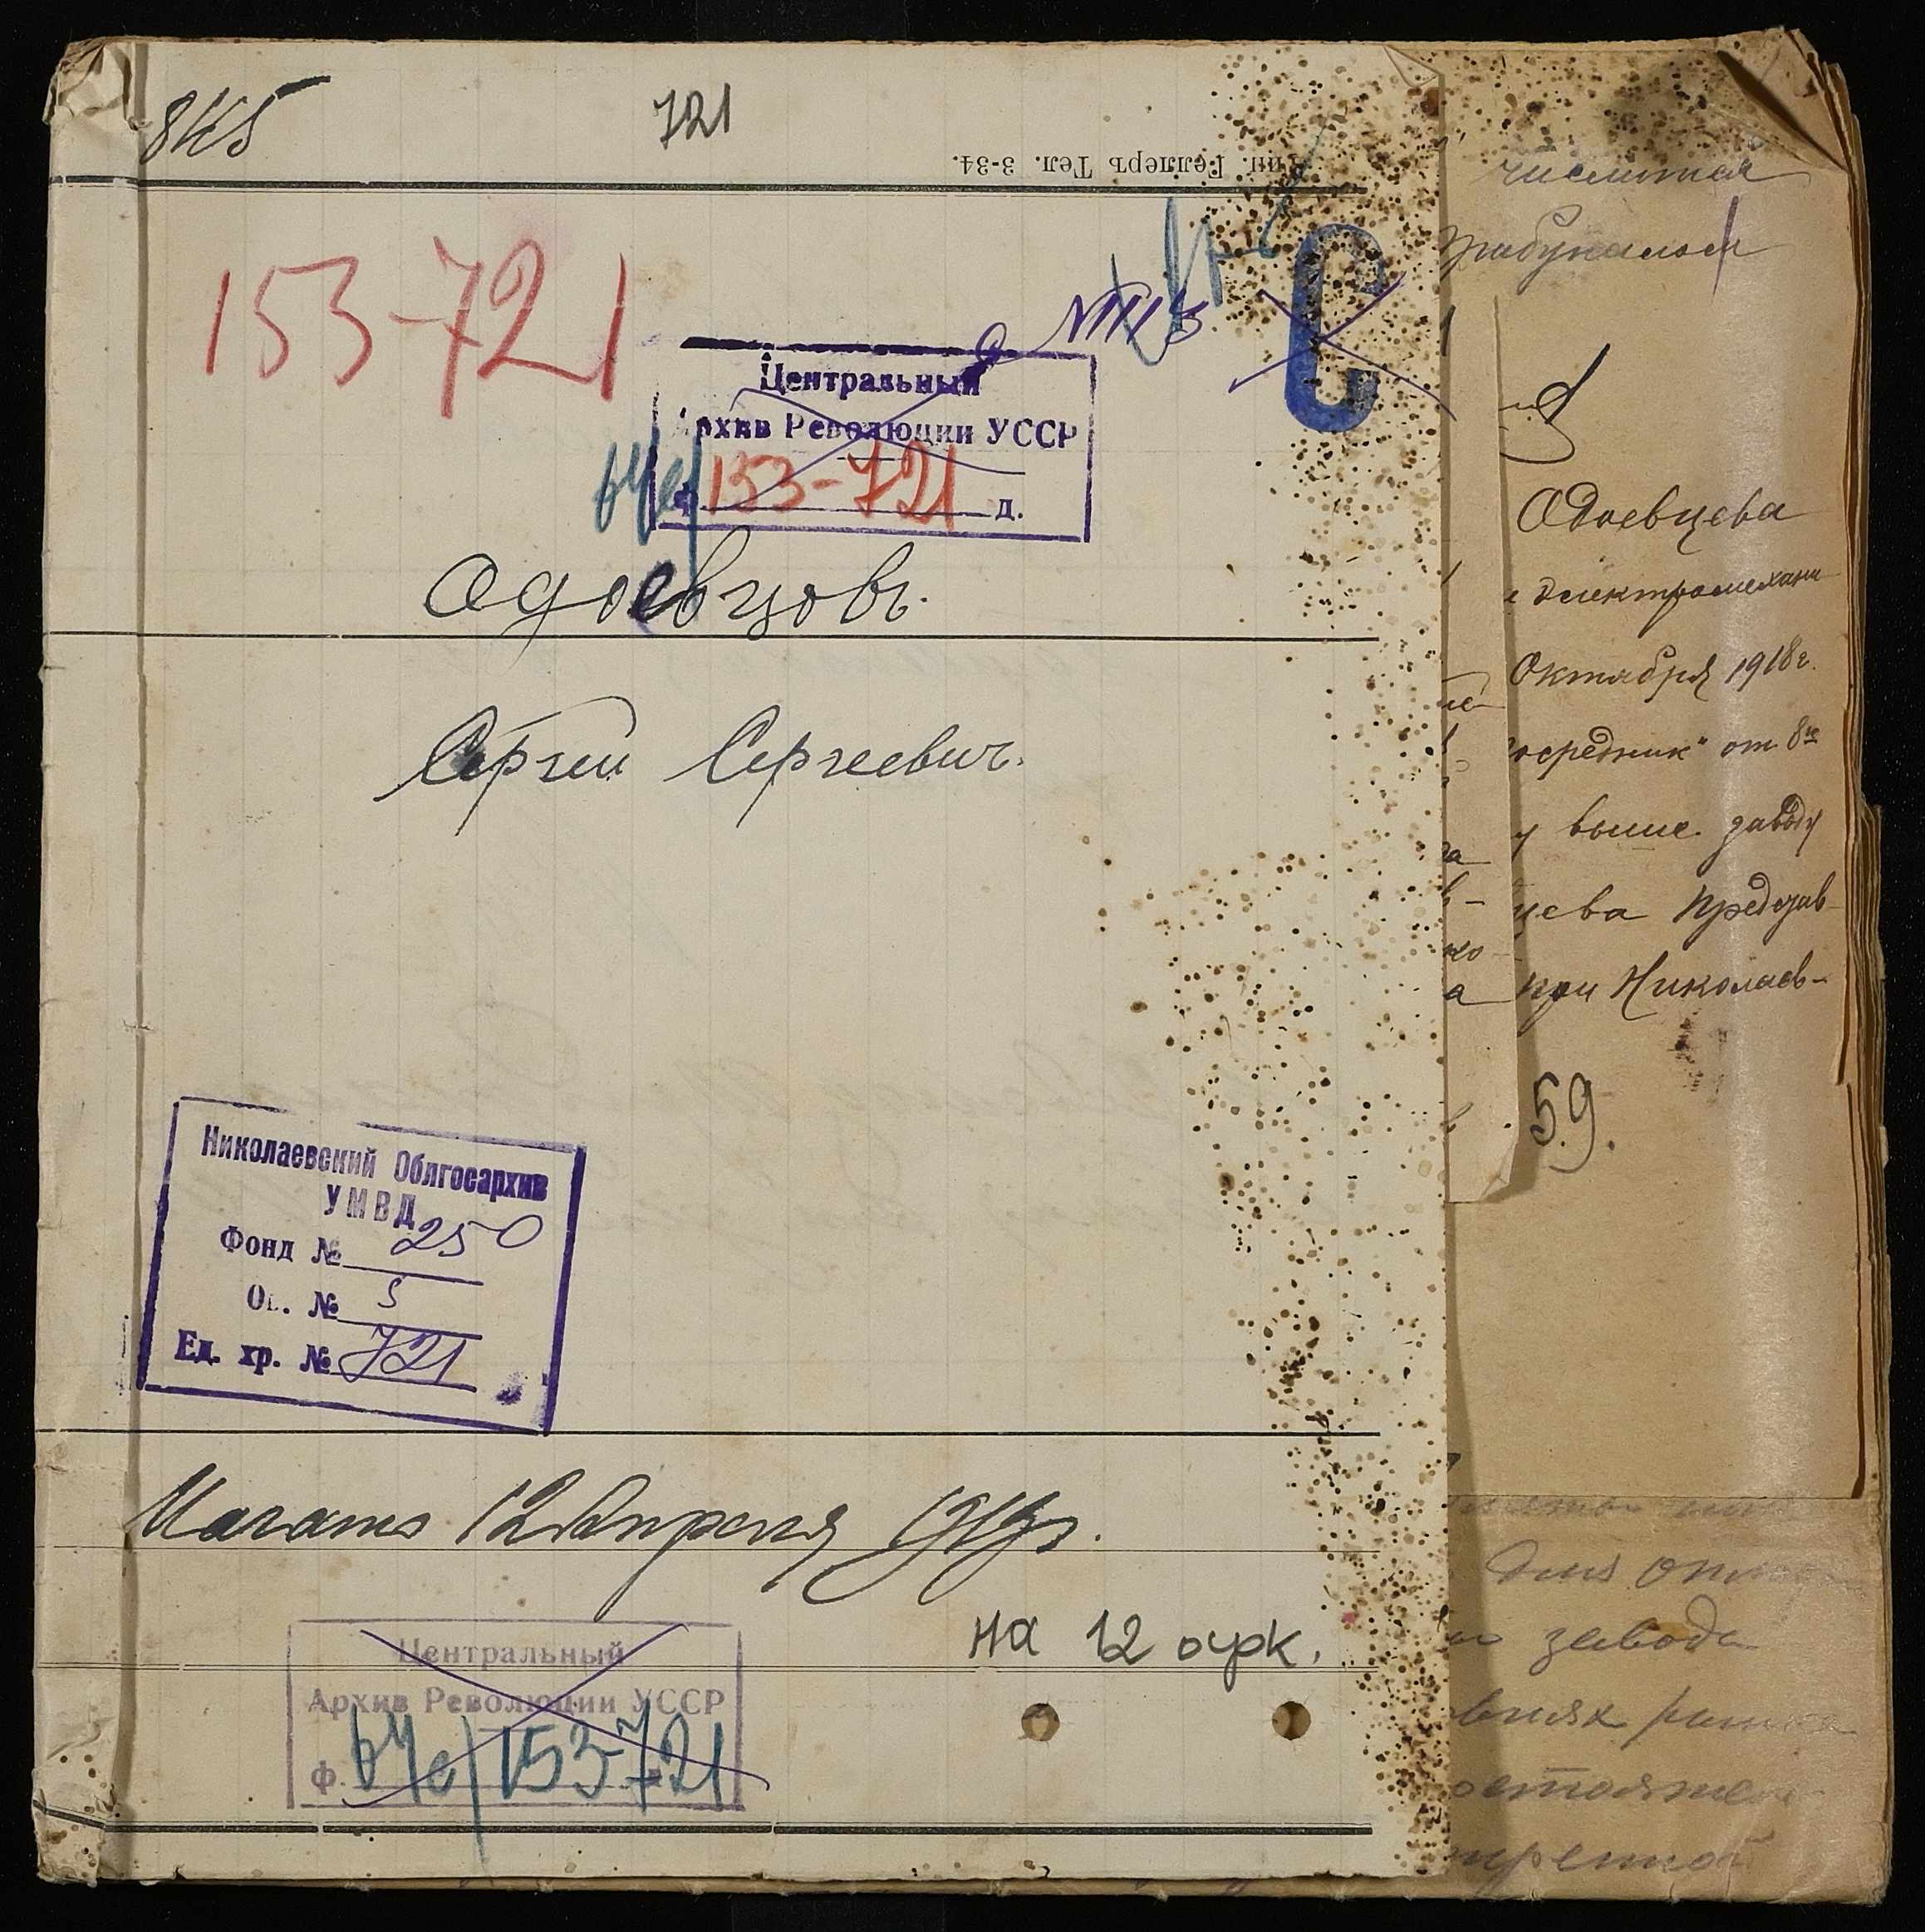 721
Тип. Геллеръ Тел. 3-34.
153-721
С
Центральный
Архив Революции УССР
ф. 153-721 д.
Одоевцовъ.
Сергей Сергеевич.
Николаевский Облгосархив
УМВД
Фонд № 250
Оп. № 5
Ед. хр. № 721
Начато 12 Апреля 1919г.
на 12 арк.
Центральный
Архив Революции УССР
ф. 153-721
числится
Одоевцева
электромехани
Октября 1918г.
осредник" от 8го
у выше заводу
цева Председав-
при Николаев-
59.
для
завода